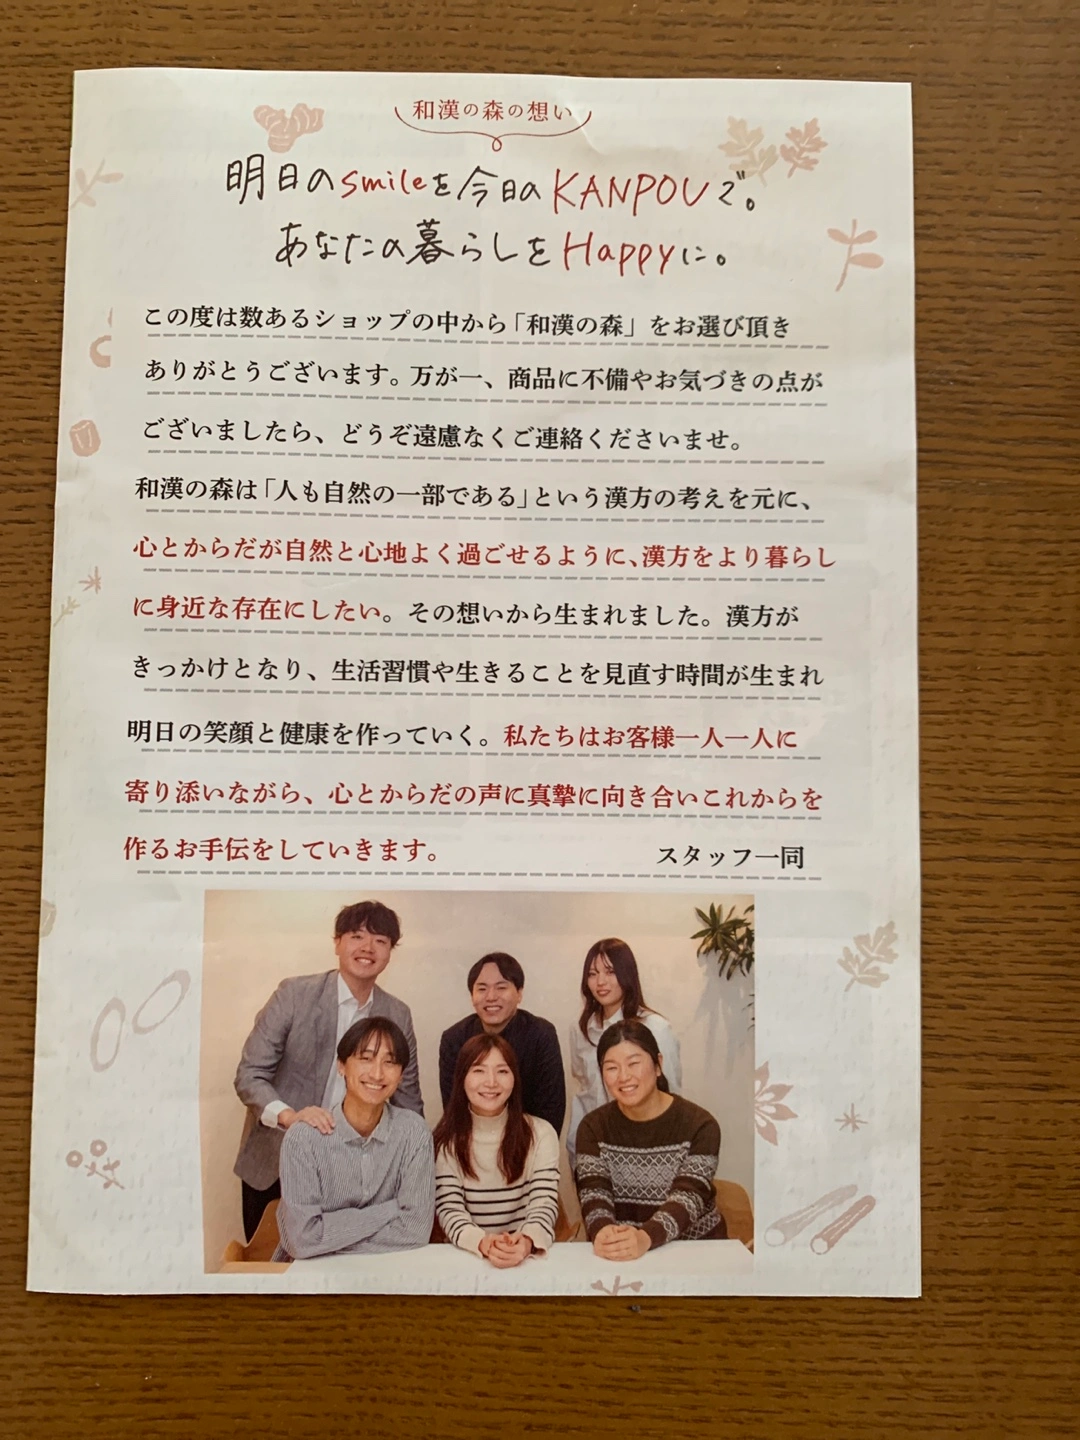 和漢の森の想い
明日のsmileを今日のKANPOUで。
あなたの暮らしをHappyに。
この度は数あるショップの中から「和漢の森」をお選び頂き
ありがとうございます。万が一、商品に不備やお気づきの点が
ございましたら、どうぞ遠慮なくご連絡くださいませ。
和漢の森は「人も自然の一部である」という漢方の考えを元に、
心とからだが自然と心地よく過ごせるように、漢方をより暮らし
に身近な存在にしたい。その想いから生まれました。漢方が
きっかけとなり、生活習慣や生きることを見直す時間が生まれ
明日の笑顔と健康を作っていく。私たちはお客様一人一人に
寄り添いながら、心とからだの声に真摯に向き合いこれからを
作るお手伝をしていきます。
スタッフ一同